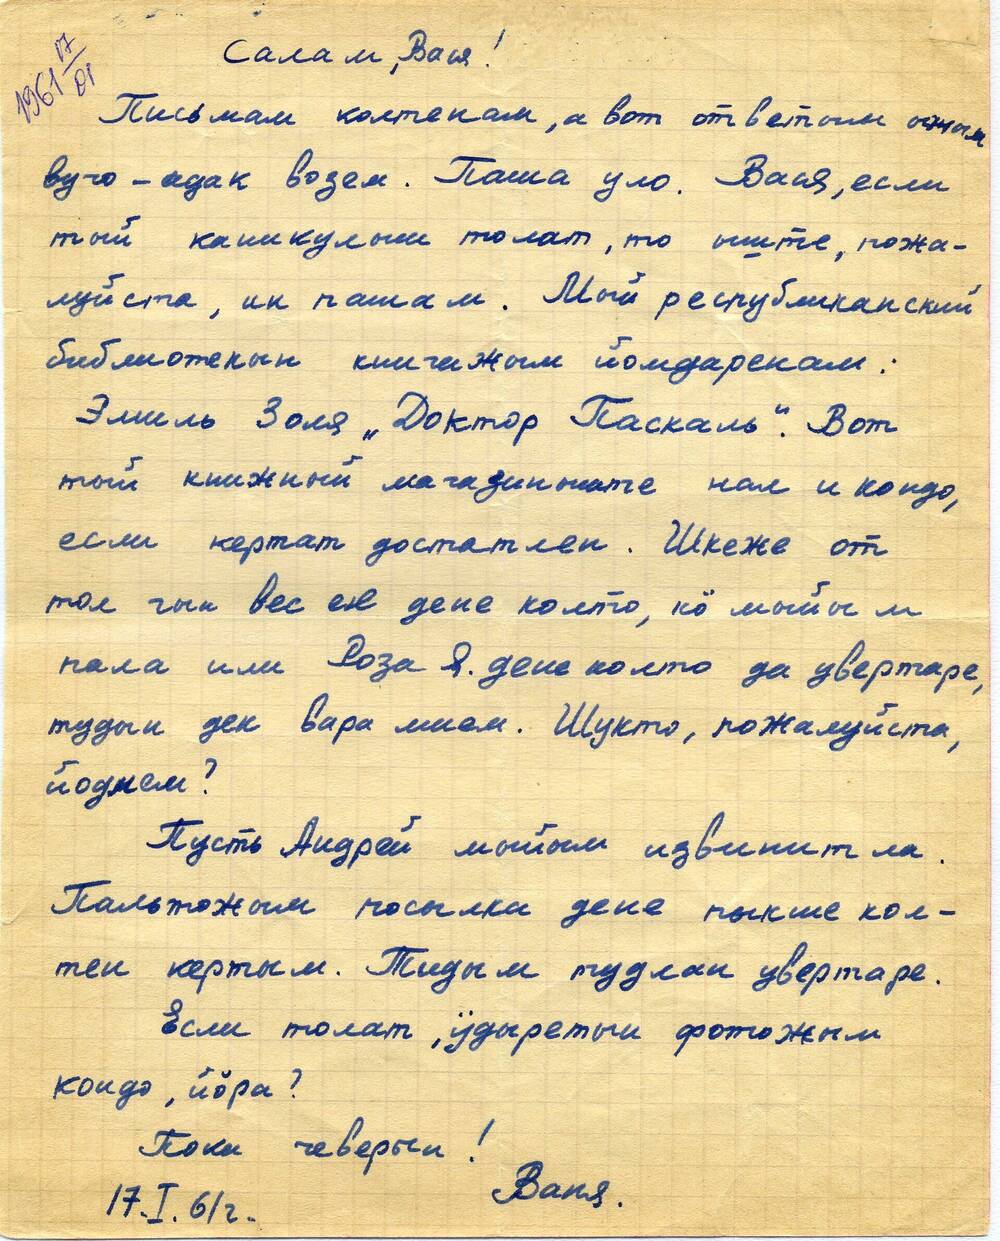 1961 17/01
Салам, Вася!
Письмам колтенам, а вот ответым ыжым
вучо - адак возем. Паша уло. Вася, если
тый каникулыш толат, то ыште, пожа-
луйста, ик пашам. Мый республиканский
библиотекын книгажым йомдаренам:
Эмиль Золя „Доктор Паскаль“. Вот
тый книжный магазиныште нал и кондо,
если кертат достатлен. Шкеже от
тол гын вес еҥ дене колто, кӧ мыйым
пала или Роза Я. дене колто да увертаре,
тудын дек вара мием. Шукто, пожалуйста,
йодмем?
Пусть Андрей мыйым извинитла.
Пальтожым посылка дене пыкше кол-
тен кертым. Тидым тудлан увертаре.
Если толат, ӱдыретын фотожым
кондо, йӧра?
Пока чеверын!
Ваня.
17.I.61г.